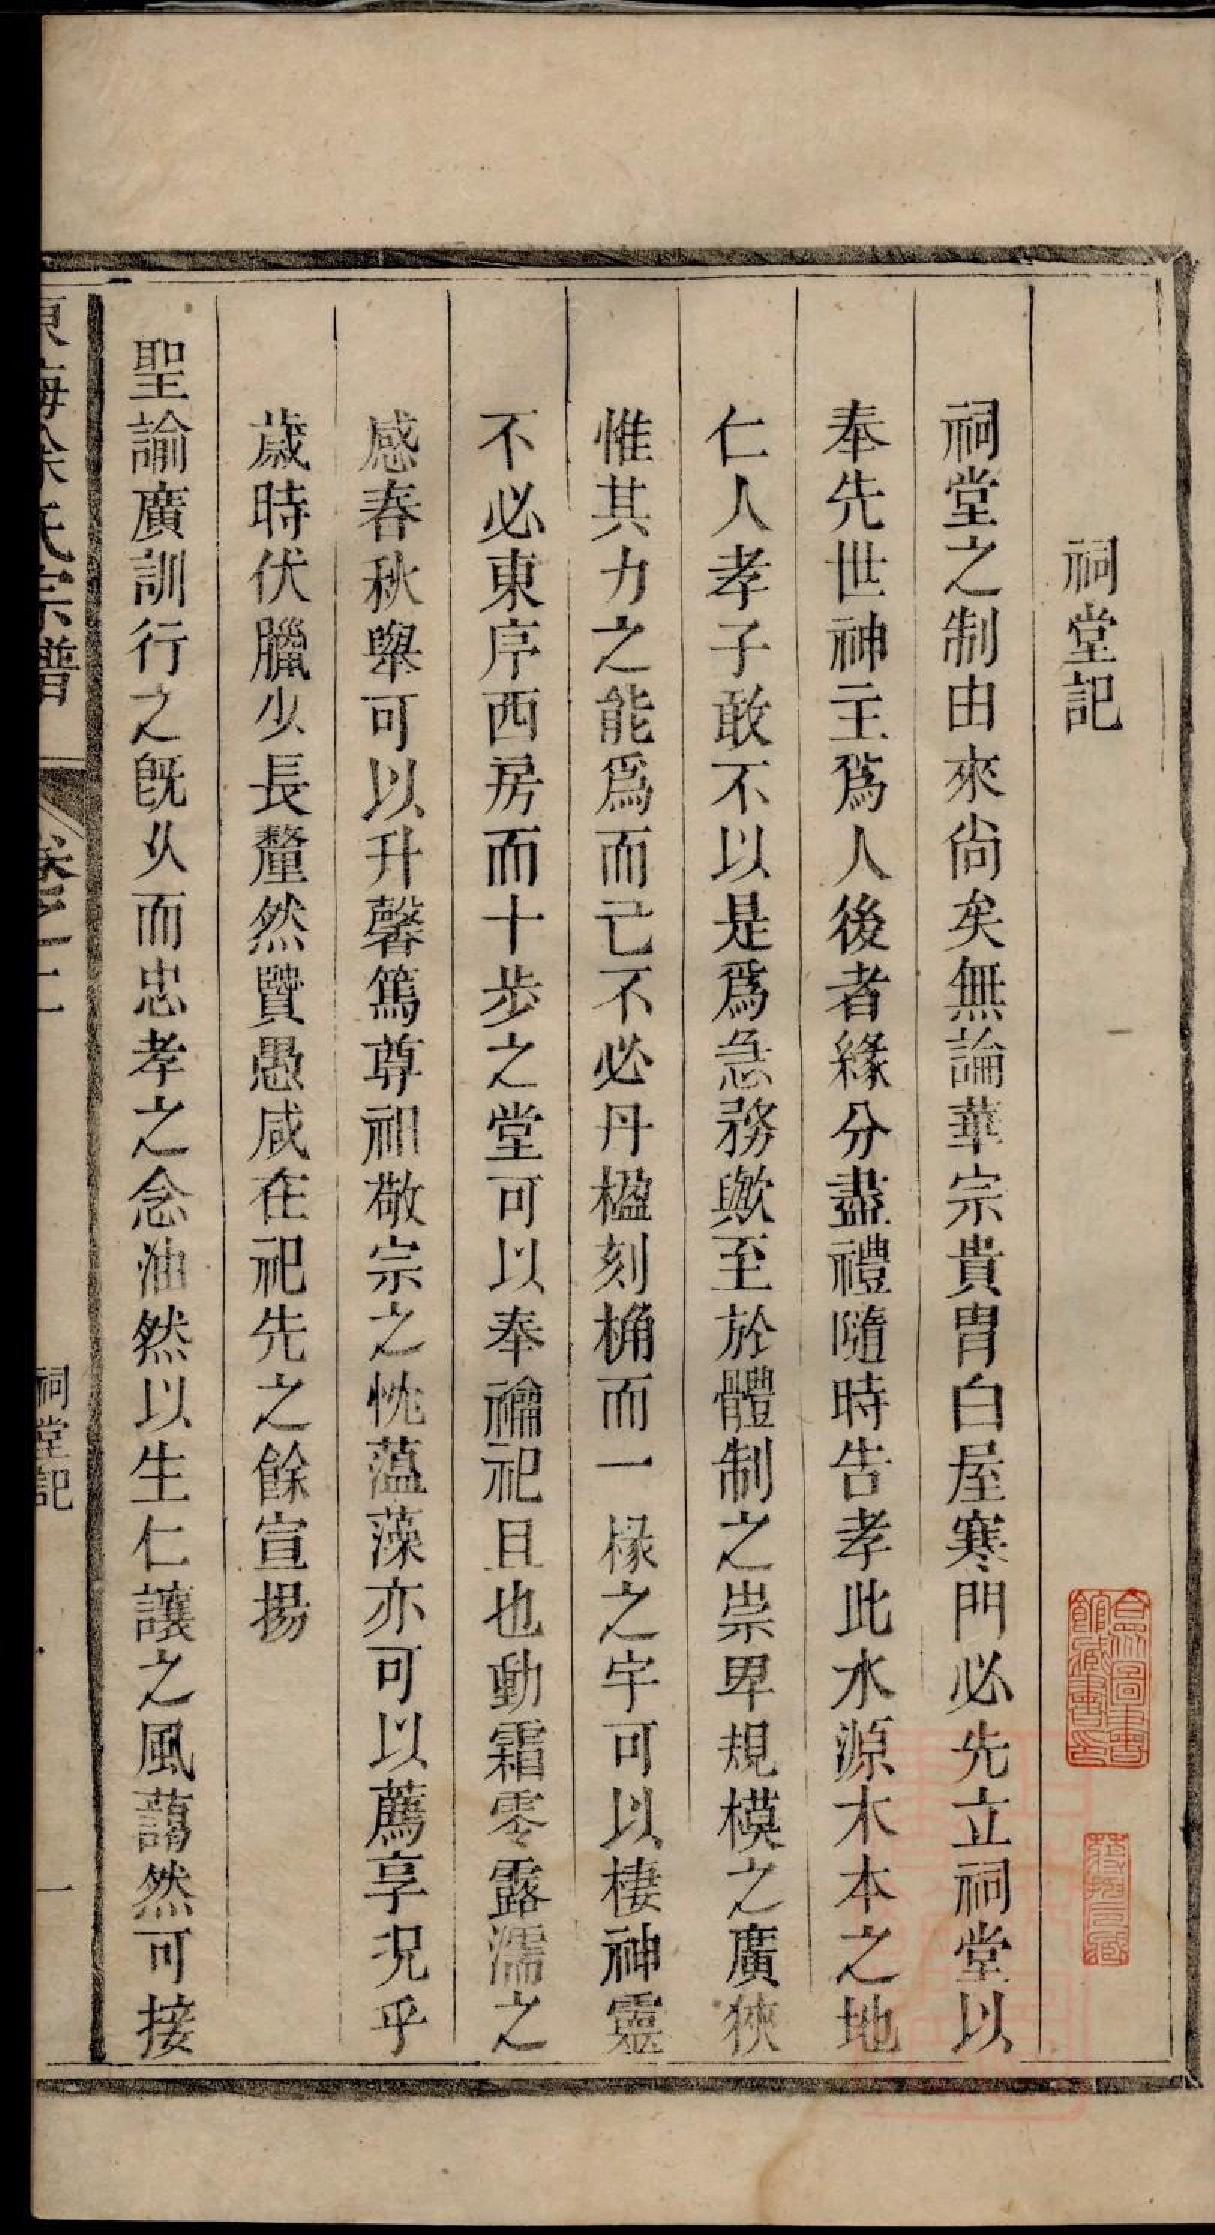 祠堂記
祠堂之制由來尙矣無論華宗貴胄白屋寒門必先立祠堂以
奉先世神主爲人後者緣分盡禮隨時告孝此水源木本之地
仁人孝子敢不以是爲急務歟至於體制之崇卑規模之廣狹
惟其力之能爲而已不必丹楹刻桷而一椽之宇可以棲神靈
不必東序西房而十步之堂可以奉禴祀且也動霜零露濡之
感春秋舉可以升馨篤尊祖敬宗之忱薀藻亦可以薦享況乎
歲時伏臘少長釐然賢愚咸在祀先之餘宣揚
聖諭廣訓行之旣久而忠孝之念油然以生仁讓之風藹然可接
東海徐氏宗譜
卷之二
祠堂記
一